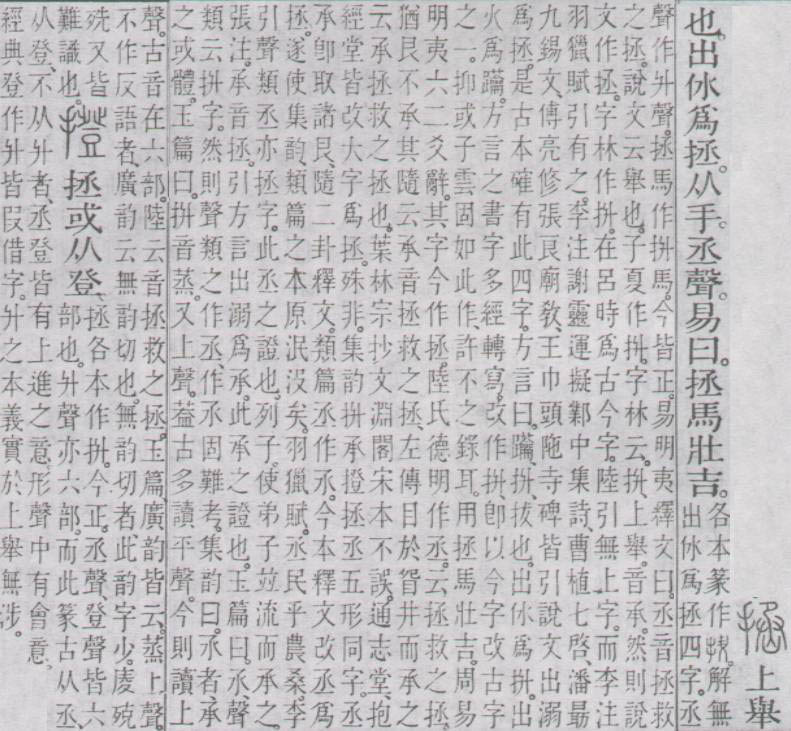 上舉
也。出休爲拯。从手。丞聲。易曰。拯馬壯吉。各本篆作抍。解無
出休爲拯四字。丞
聲作升聲。拯馬作抍馬。今皆正。易明夷釋文曰。丞音拯救
之拯。說文云舉也。子夏作抍。字林云。抍、上舉。音承。然則說
文作拯。字林作抍。在呂時爲古今字。陸引無上字。而李注
羽獵賦引有之。李注謝靈運擬鄴中集詩、曹植七啓、潘勗
九錫文、傅亮修張良廟教、王巾頭陁寺碑皆引說文出溺
爲拯。是古本確有此四字。方言曰。躡、抍、拔也。出休爲抍。出
火爲躡。方言之書字多經轉寫。改作抍、卽以今字改古字
之一。抑或子雲固如此作、許不之錄耳。用拯馬壯吉。周易
明夷六二爻辭。其字今作拯。陸氏德明作丞。云拯救之拯。
猶艮不承其隨云承音拯救之拯、左傳目於眢井而承之
云承拯救之拯也。葉林宗抄文淵閣宋本不誤。通志堂、抱
經堂皆改大字爲拯。殊非。集韵抍承撜拯丞五形同字。丞
承卽取諸艮、隨二卦釋文。類篇丞作承。今本釋文改丞爲
拯、遂使集韵、類篇之本原泯沒矣。羽獵賦。丞民乎農桑。李
引聲類丞亦拯字。此丞之證也。列子。使弟子竝流而承之。
張注。承音拯。引方言出溺爲承。此承之證也。玉篇曰。承、聲
類云抍字。然則聲類之作丞、作承固難考。集韵曰。承者、承
之或體。玉篇曰。抍音蒸。又上聲。葢古多讀平聲。今則讀上
聲。古音在六部。陸云音拯救之拯。玉篇廣韵皆云。蒸上聲。
不作反語者、廣韵云無韵切也。無韵切者、此韵字少。庱殑
殑又皆
難識也。撜拯或从登、拯各本作抍。今正。丞聲、登聲皆六
部也。升聲亦六部。而此篆古从丞、
从登、不从升者、丞登皆有上進之意。形聲中有會意。
經典登作升皆叚借字。升之本義實於上舉無涉。